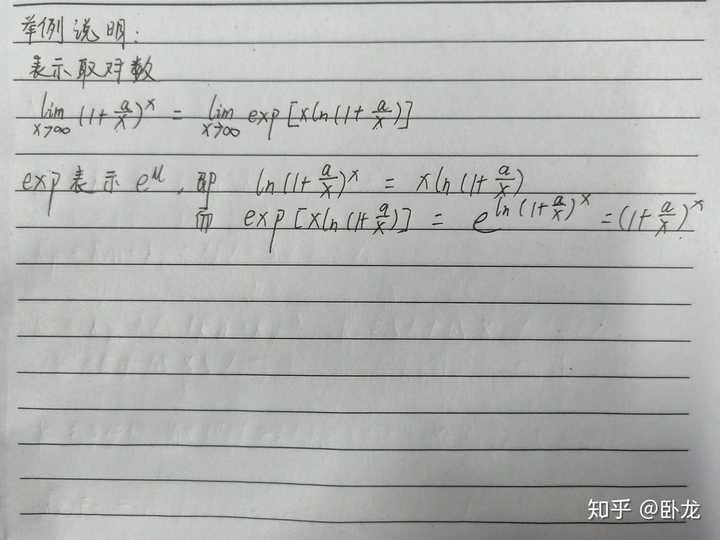 举例说明:
表示取对数
lim x→∞ (1+a/x)^x = lim x→∞ exp[xln(1+a/x)]
exp表示e^u,即 ln(1+a/x)^x = xln(1+a/x)
而 exp[xln(1+a/x)] = e^ln(1+a/x)^x = (1+a/x)^x
知乎 @卧龙